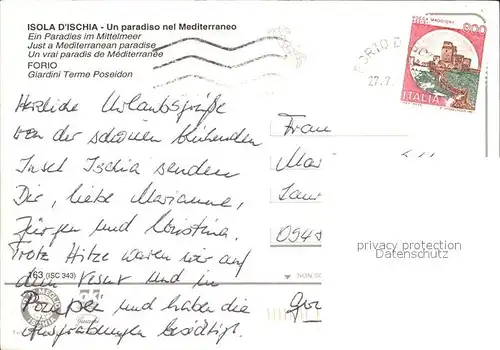 ISOLA D'ISCHIA - Un paradiso nel Mediterraneo
Ein Paradies im Mittelmeer
Just a Mediterranean paradise
Un vrai paradis de Méditerranée
FORIO
Giardini Terme Poseidon
800
ITALIA
PORTO D
27.7.
Herzliche Urlaubsgrüße
von der schönen blühenden
Insel Ischia senden
Dir, liebe Marianne,
Jürgen und Christina.
Trotz Hitze waren wir auf
dem Vesuv und in
Pompeji und haben die
Ausgrabungen besichtigt.
Frau
0948
privacy protection
Datenschutz
163 (ISC 343)